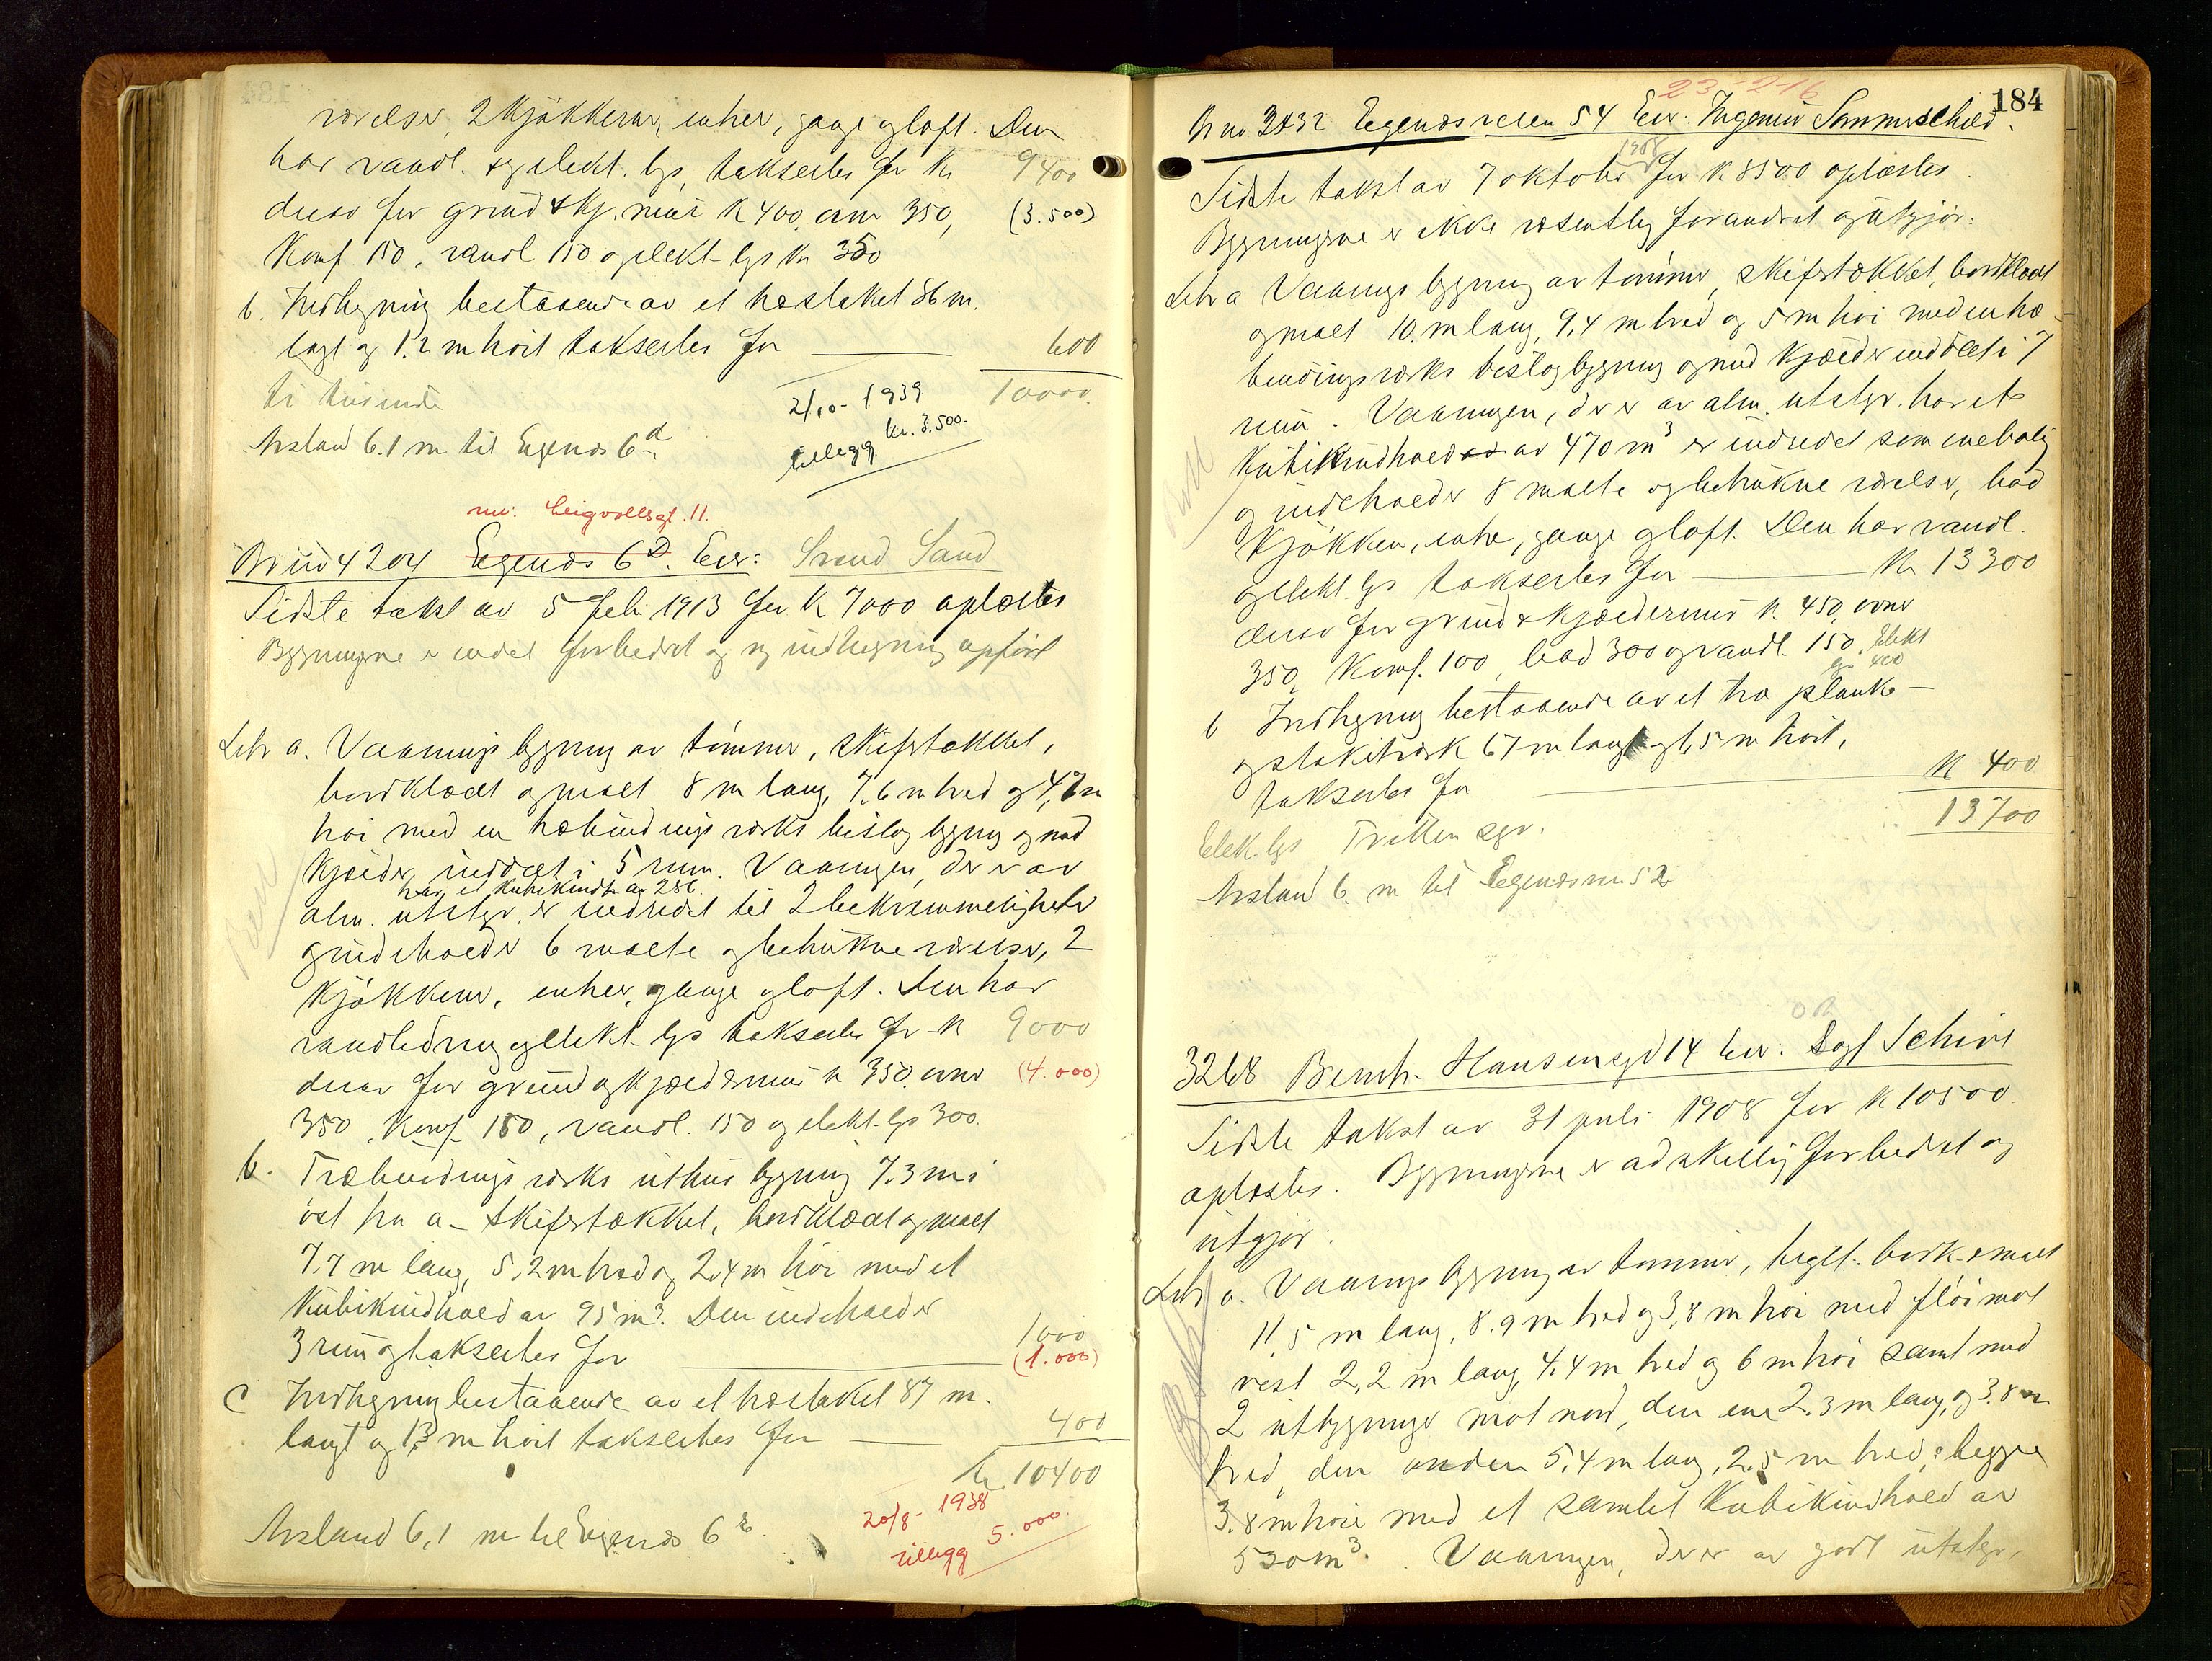 værelser, 2 kjøkkener, entreer, gange og loft. Den
har vandl. & elekt. lys, takseertes for kr 9400
derav for grund & kj. mur k 400, ovne 350, (3.500)
Komf. 150, vandl 150 og elekt lys kr 350
b. Indhegning bestaaende av et træstaket 86 m.
langt og 1.2 m høit takseertes for 600
ti tusinde 10000
2/10- 1939
tillegg kr. 3.500.
Avstand 6.1 m til Egenes 6d
nu: Eligvollsgt. 11.
Br no 4204 Egenes 6D. Eier: Svend Sand
Sidste takst av 5 Feb. 1913 for k 7000 oplæstes
Bygningerne er endel forbedret og ny indhegning opført
Litr a. Vaaningsbygning av tømmer, skifertækket,
bordklædt og malt 8 m lang, 7.6 m bred og 4,7 m
høi med en træbindingsverks bislagbygning og med
kjælder inddelt i 5 rum. Vaaningen, der er av
har et kubikindh. av 286.
alm. utstyr, er indredet til 2 bekvemmeligheter
og indeholder 6 malte og betrukne værelser, 2
kjøkkener, entreer, gange og loft. Den har
vandledning og elekt. lys takseertes for k 9000
derav for grund og kjældermur k 350. ovne (4.000)
350, Komf. 150, vandl. 150 og elekt. lys 300.
b. Træbindingsverks uthusbygning 7.3 m i
øst fra a - skifertækket, bordklædt og malt
7.7 m lang, 5.2 m bred og 2.4 m høi med et
kubikindhold av 95 m3. Den indeholder
3 rum og takseertes for 1000
(1.000)
c Indhegning bestaaende av et træstaket 87 m.
langt og 1.3 m høit takseertes for 400
kr 10400
20/8- 1938
tillegg 5.000.
Avstand 6,1 m til Egenes 6 E.
184
23-2-16
Br no 3832 Egenesveien 54 Eier: Ingeniør Sømmeschield.
Sidste takst av 7 oktober 1908 for k 8500 oplæstes.
Bygningerne er ikke væsentlig forandret og utgjør:
Litr a Vaaningsbygning av tømmer, skifertækket, bordklædt
og malt 10. m lang, 9,4 m bred og 5 m høi med en træ-
bindingsverks bislagbygning og med kjælder inddelt i 7
rum. Vaaningen, der er av alm. utstyr. har et
kubikindhold av 470 m3 er indredet som enebolig
og indeholder 8 malte og betrukne værelser, bad
kjøkken, entre, gange og loft. Den har vandl.
og elekt. lys takseertes for kr 13300
derav for grund & kjældermur k. 450, ovner
350, Komf. 100, bad 300 og vandl. 150, Elekt
lys 400
b Indhegning bestaaende av et træ planke-
og stakitværk 67 m langt og 1,5 m høit,
takseertes for k 400
13700
Elek. lys Tretten syv.
Avstand 6. m til Egenesvn 52
3268 Bernh. Hansens gd 14 Eier: Dagf Schive
Sidste takst av 31 juli 1908 for k 10500
oplæstes. Bygningerne er adskillig forbedret og
utgjør:
Litr a. Vaaningsbygning av tømmer, teglt. bordk. & malt
11,5 m lang, 8.9 m bred og 3,8 m høi med fløi mot
vest 2,2 m lang, 4.4 m bred og 6 m høi samt med
2 utbygninger mot nord, den ene 2.3 m lang, og 3.8 m
bred, den anden 5,4 m lang, 2.5 m bred, begge
3.8 m høie med et samlet kubikindhold av
530 m3. Vaaningen, der er av godt utstyr,